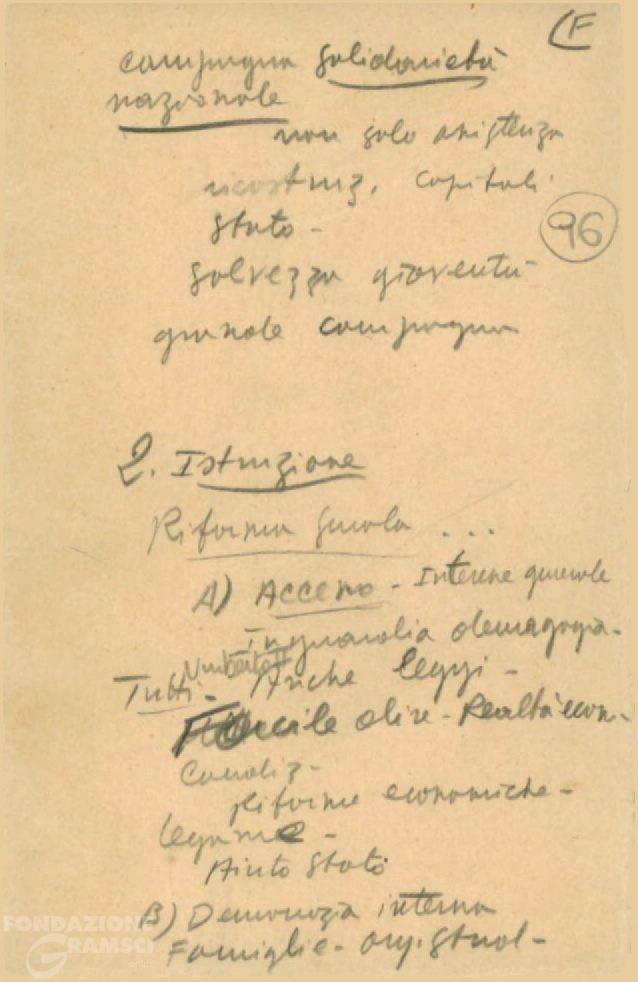 (F
campagna solidarietà
nazionale
non solo assistenza
ricostruz. capitali
Stato -
96
salvezza gioventù
grande campagna
2. Istruzione
Riforma Scuola ...
A) Accesso - Interesse generale
in guardia demagogia -
Tutti - Anche leggi -
Facile dire - Realtà econ.
Condiz -
Riforme economiche -
legame -
Aiuto Stato
B) Democrazia interna
Famiglie - org. stud -
FONDAZIONE
GRAMSCI